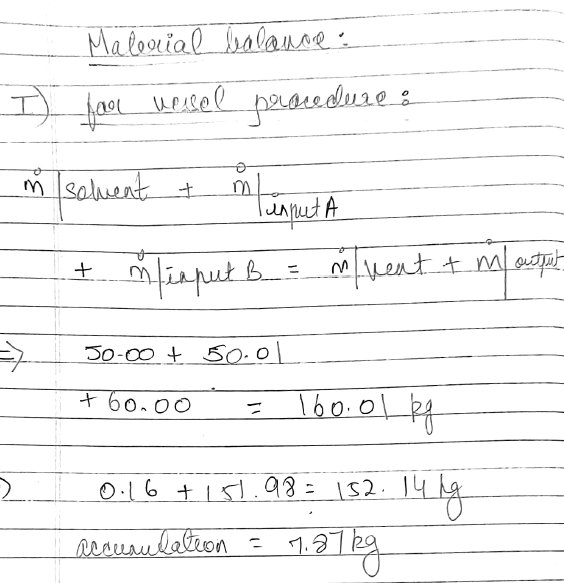 Material balance :
I) for vessel procedure :
ṁ|solvent + ṁ|input A
+ ṁ|input B = ṁ|vent + ṁ|output
=> 50.00 + 50.01
+ 60.00 = 160.01 kg
0.16 + 151.98 = 152.14 kg
accumulation = 7.87 kg